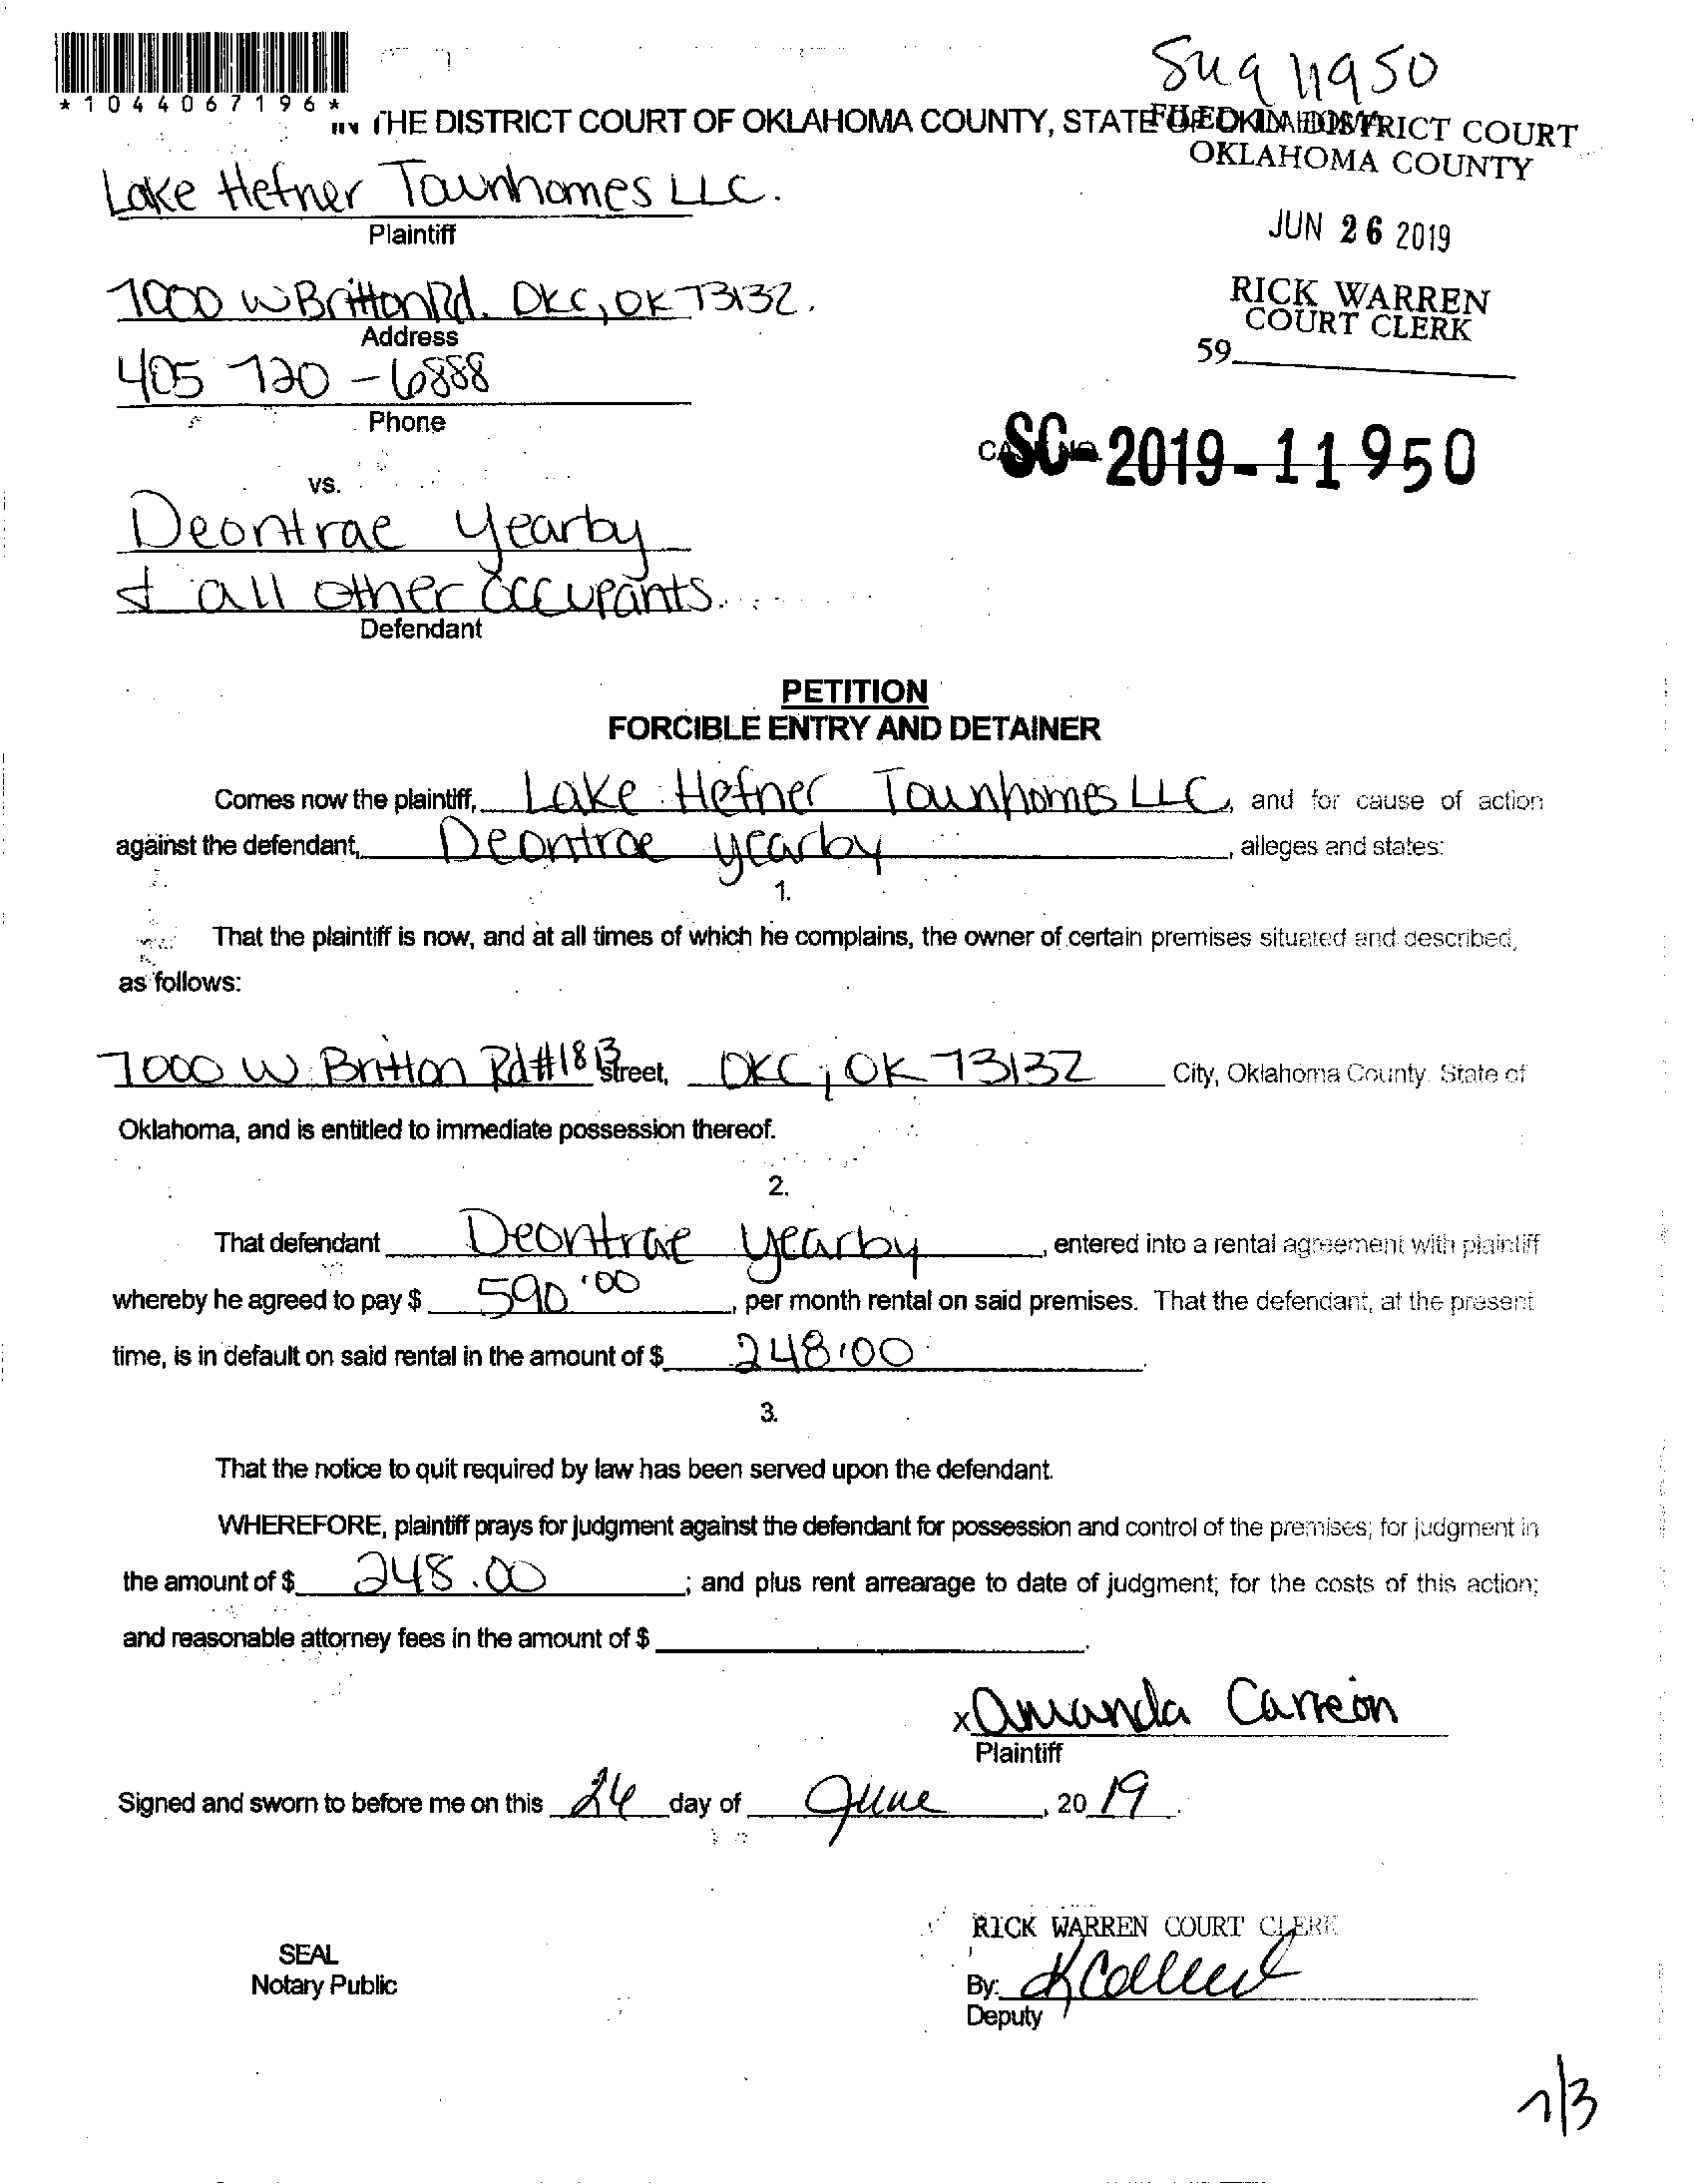 *1044067196*
THE DISTRICT COURT OF OKLAHOMA COUNTY, STATE OF OKLAHOMA
FILED IN DISTRICT COURT
OKLAHOMA COUNTY
Lake Hefner Townhomes LLC.
Plaintiff
JUN 26 2019
7000 W Britton Rd. OKC, OK 73132.
Address
RICK WARREN
COURT CLERK
59
405 720-6888
Phone
SC-2019-11950
vs.
Deontrae Yearby
& all other occupants.
Defendant
PETITION
FORCIBLE ENTRY AND DETAINER
Comes now the plaintiff, Lake Hefner Townhomes LLC, and for cause of action
against the defendant, Deontrae yearby, alleges and states:
1.
That the plaintiff is now, and at all times of which he complains, the owner of certain premises situated and described,
as follows:
7000 W. Britton Rd #1813 Street, OKC, OK 73132 City, Oklahoma County, State of
Oklahoma, and is entitled to immediate possession thereof.
2.
That defendant Deontrae yearby, entered into a rental agreement with plaintiff
whereby he agreed to pay $ 590.00, per month rental on said premises. That the defendant, at the present
time, is in default on said rental in the amount of $ 248.00.
3.
That the notice to quit required by law has been served upon the defendant.
WHEREFORE, plaintiff prays for judgment against the defendant for possession and control of the premises; for judgment in
the amount of $ 248.00; and plus rent arrearage to date of judgment; for the costs of this action;
and reasonable attorney fees in the amount of $
x Amanda Carreon
Plaintiff
Signed and sworn to before me on this 26 day of June, 2019.
RICK WARREN COURT CLERK
SEAL
Notary Public
By:
Deputy
7/3